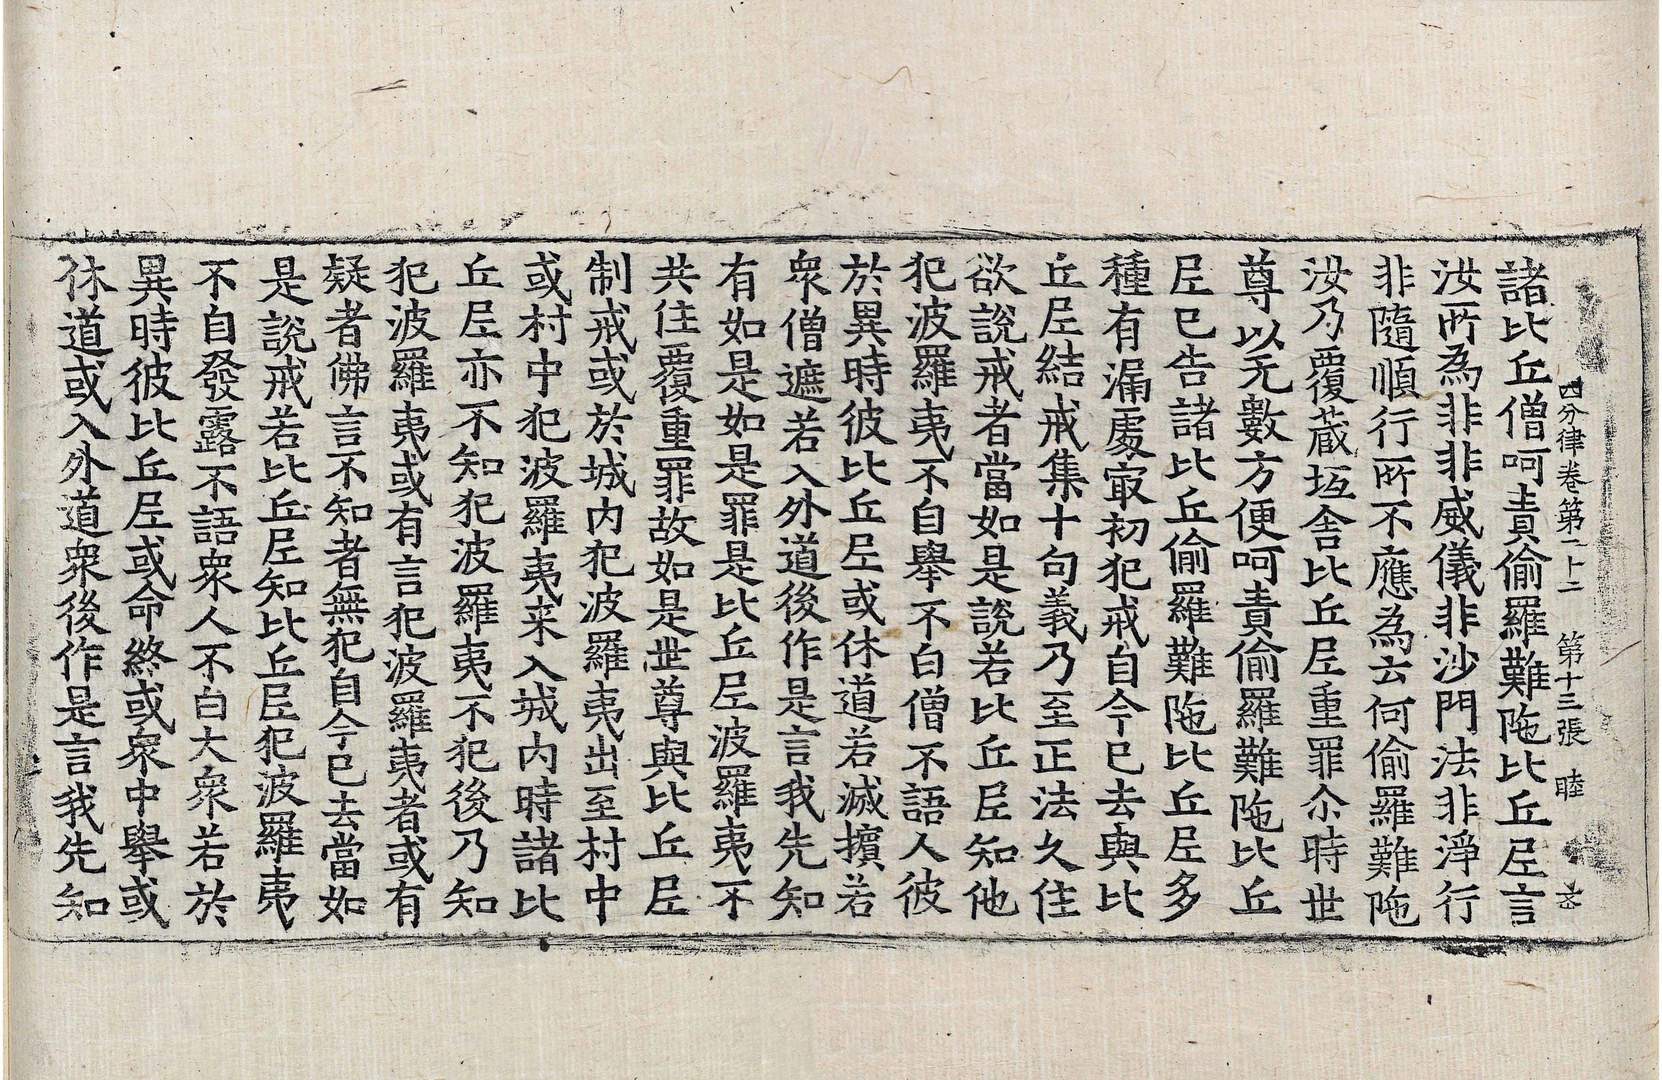 四分律卷第二十二　第十三張　睦
諸比丘僧呵責偷羅難陁比丘𡰱言
汝所為非非威儀非沙門法非淨行
非隨順行所不應為云何偷羅難陁
汝乃覆蔵垢舍比丘𡰱重罪尒時世
尊以无數方便呵責偷羅難陁比丘
𡰱已告諸比丘偷羅難陁比丘𡰱多
種有漏處㝡初犯戒自今已去與比
丘𡰱結戒集十句義乃至正法久住
欲說戒者當如是說若比丘𡰱知他
犯波羅夷不自舉不白僧不語人彼
於異時彼比丘𡰱或休道若滅擯若
衆僧遮若入外道後作是言我先知
有如是如是罪是比丘𡰱波羅夷不
共住覆重罪故如是世尊與比丘𡰱
制戒或於城內犯波羅夷出至村中
或村中犯波羅夷来入城內時諸比
丘𡰱亦不知犯波羅夷不犯後乃知
犯波羅夷或有言犯波羅夷者或有
疑者佛言不知者無犯自今已去當如
是說戒若比丘𡰱知比丘𡰱犯波羅夷
不自發露不語衆人不白大衆若於
異時彼比丘𡰱或命終或衆中舉或
休道或入外道衆後作是言我先知